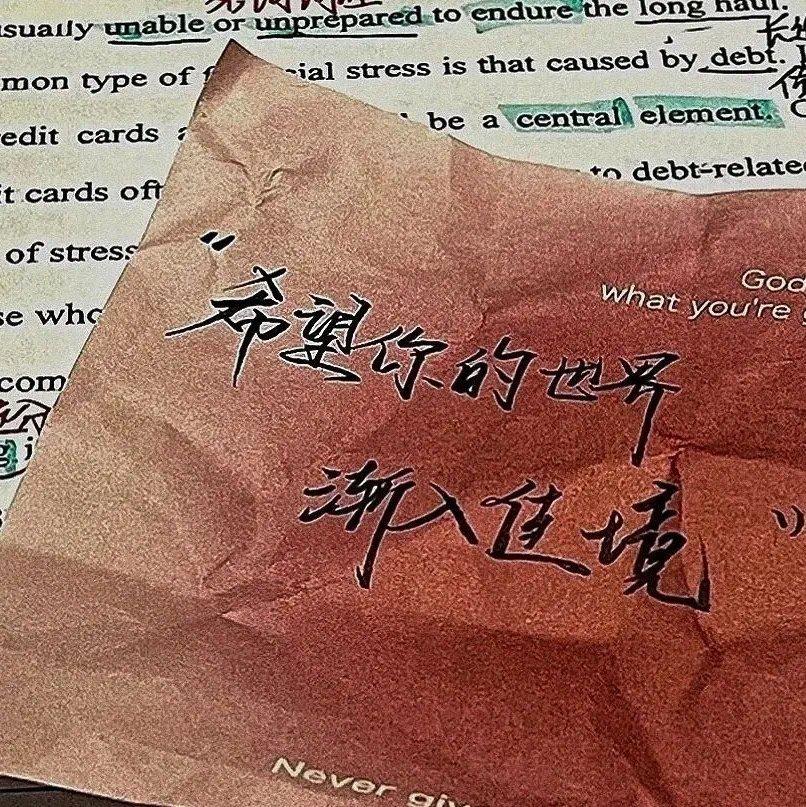 usually unable or unprepared to endure the long haul.
mon type of ial stress is that caused by debt.
edit cards be a central element.
it cards oft to debt-related
of stress
se who
com
God
what you're
"希望你的世界
渐入佳境"
Never giv